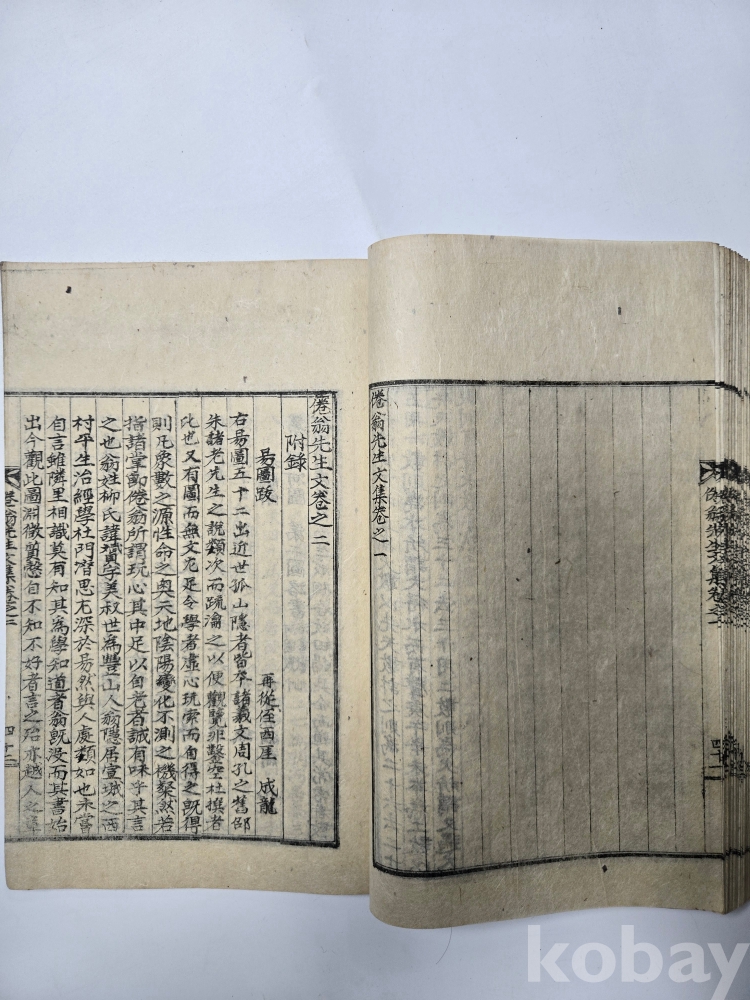 倦翁先生文集卷之一
倦翁先生文卷之二
附錄
易圖跋
再從侄西厓 成龍
右易圖五十二出近世孤山隱者皆本諸羲文周孔之舊邵
朱諸老先生之說類次而疏瀹之以便觀覽非鑿空杜撰者
比也又有圖而無文完是令學者虛心玩索而自得之旣得
則凡象數之源性命之奧天地陰陽變化不測之機檠然若
指諸掌勤倦翁所謂玩心其中足以自老者誠有味乎其言
之也翁姓柳氏諱贇字美叔世為豐山人翁隱居宣城之西
村平生治經學杜門潛思尤深於易然與人處類如也未嘗
自言雖隣里相識莫有知其為學知道者翁旣没而其書始
出今觀此圖淵微質慤自不知不好者言之殆亦越人之章
倦翁先生文集卷之二
四十二
kobay